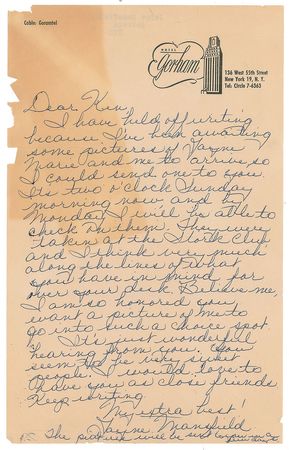 Cable: Goramtel
HOTEL
Gorham
136 West 55th Street
New York 19, N. Y.
Tel: Circle 7-6363
Dear Ken,
I have held off writing
because I've been awaiting
some pictures of Jayne
Marie and me to arrive, so
I could send one to you.
It's two o'clock Sunday
morning now, and by
Monday I will be able to
check on them. They were
taken at the Stork Club
and I think very much
along the lines of what
you have in mind for
over your desk. Believe me,
I am so honored you
want a picture of me to
go into such a choice spot.
It's just wonderful
hearing from you. You
seem to be very sweet
people. I would love to
have you as close friends
Keep writing.
My extra best!
Jayne Mansfield
The picture will be sent to you in a